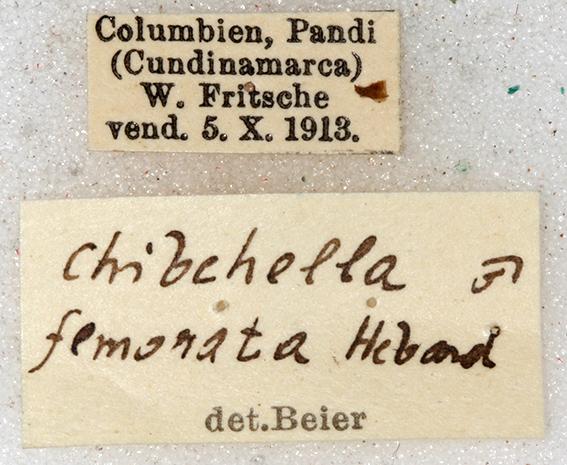 Columbien, Pandi
(Cundinamarca)
W. Fritsche
vend. 5. X. 1913.
Chibchella ♂
femorata Hebard
det.Beier